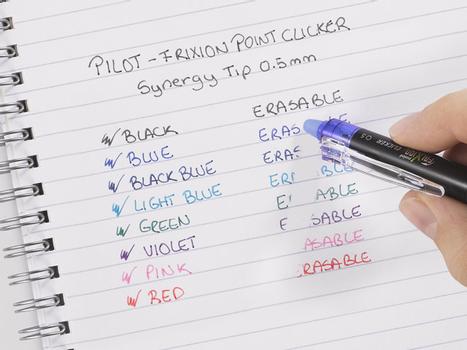 PILOT - FRIXION POINT CLICKER
Synergy Tip 0.5mm
ERASABLE
BLACK ERAS
BLUE ERAS
BLACK BLUE BLE
LIGHT BLUE ABLE
GREEN E SABLE
VIOLET ASABLE
PINK RASABLE
RED
FriXion CLICKER 0.5